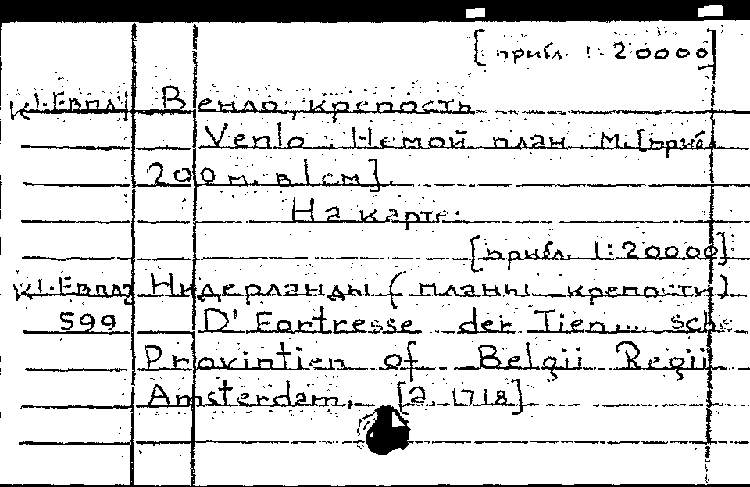 [прибл. 1:20000]
К1-Евпл7 Венло, крепость
Venlo. Немой план. М.[приб
200 м. в 1 см].
На карте:
[прибл. 1:20000]
К1-Евпл7 Нидерланды (планы крепости)
599 D' Fortresse der Tien... sche
Provintien of Belgii Regii
Amsterdam, [a. 1718]